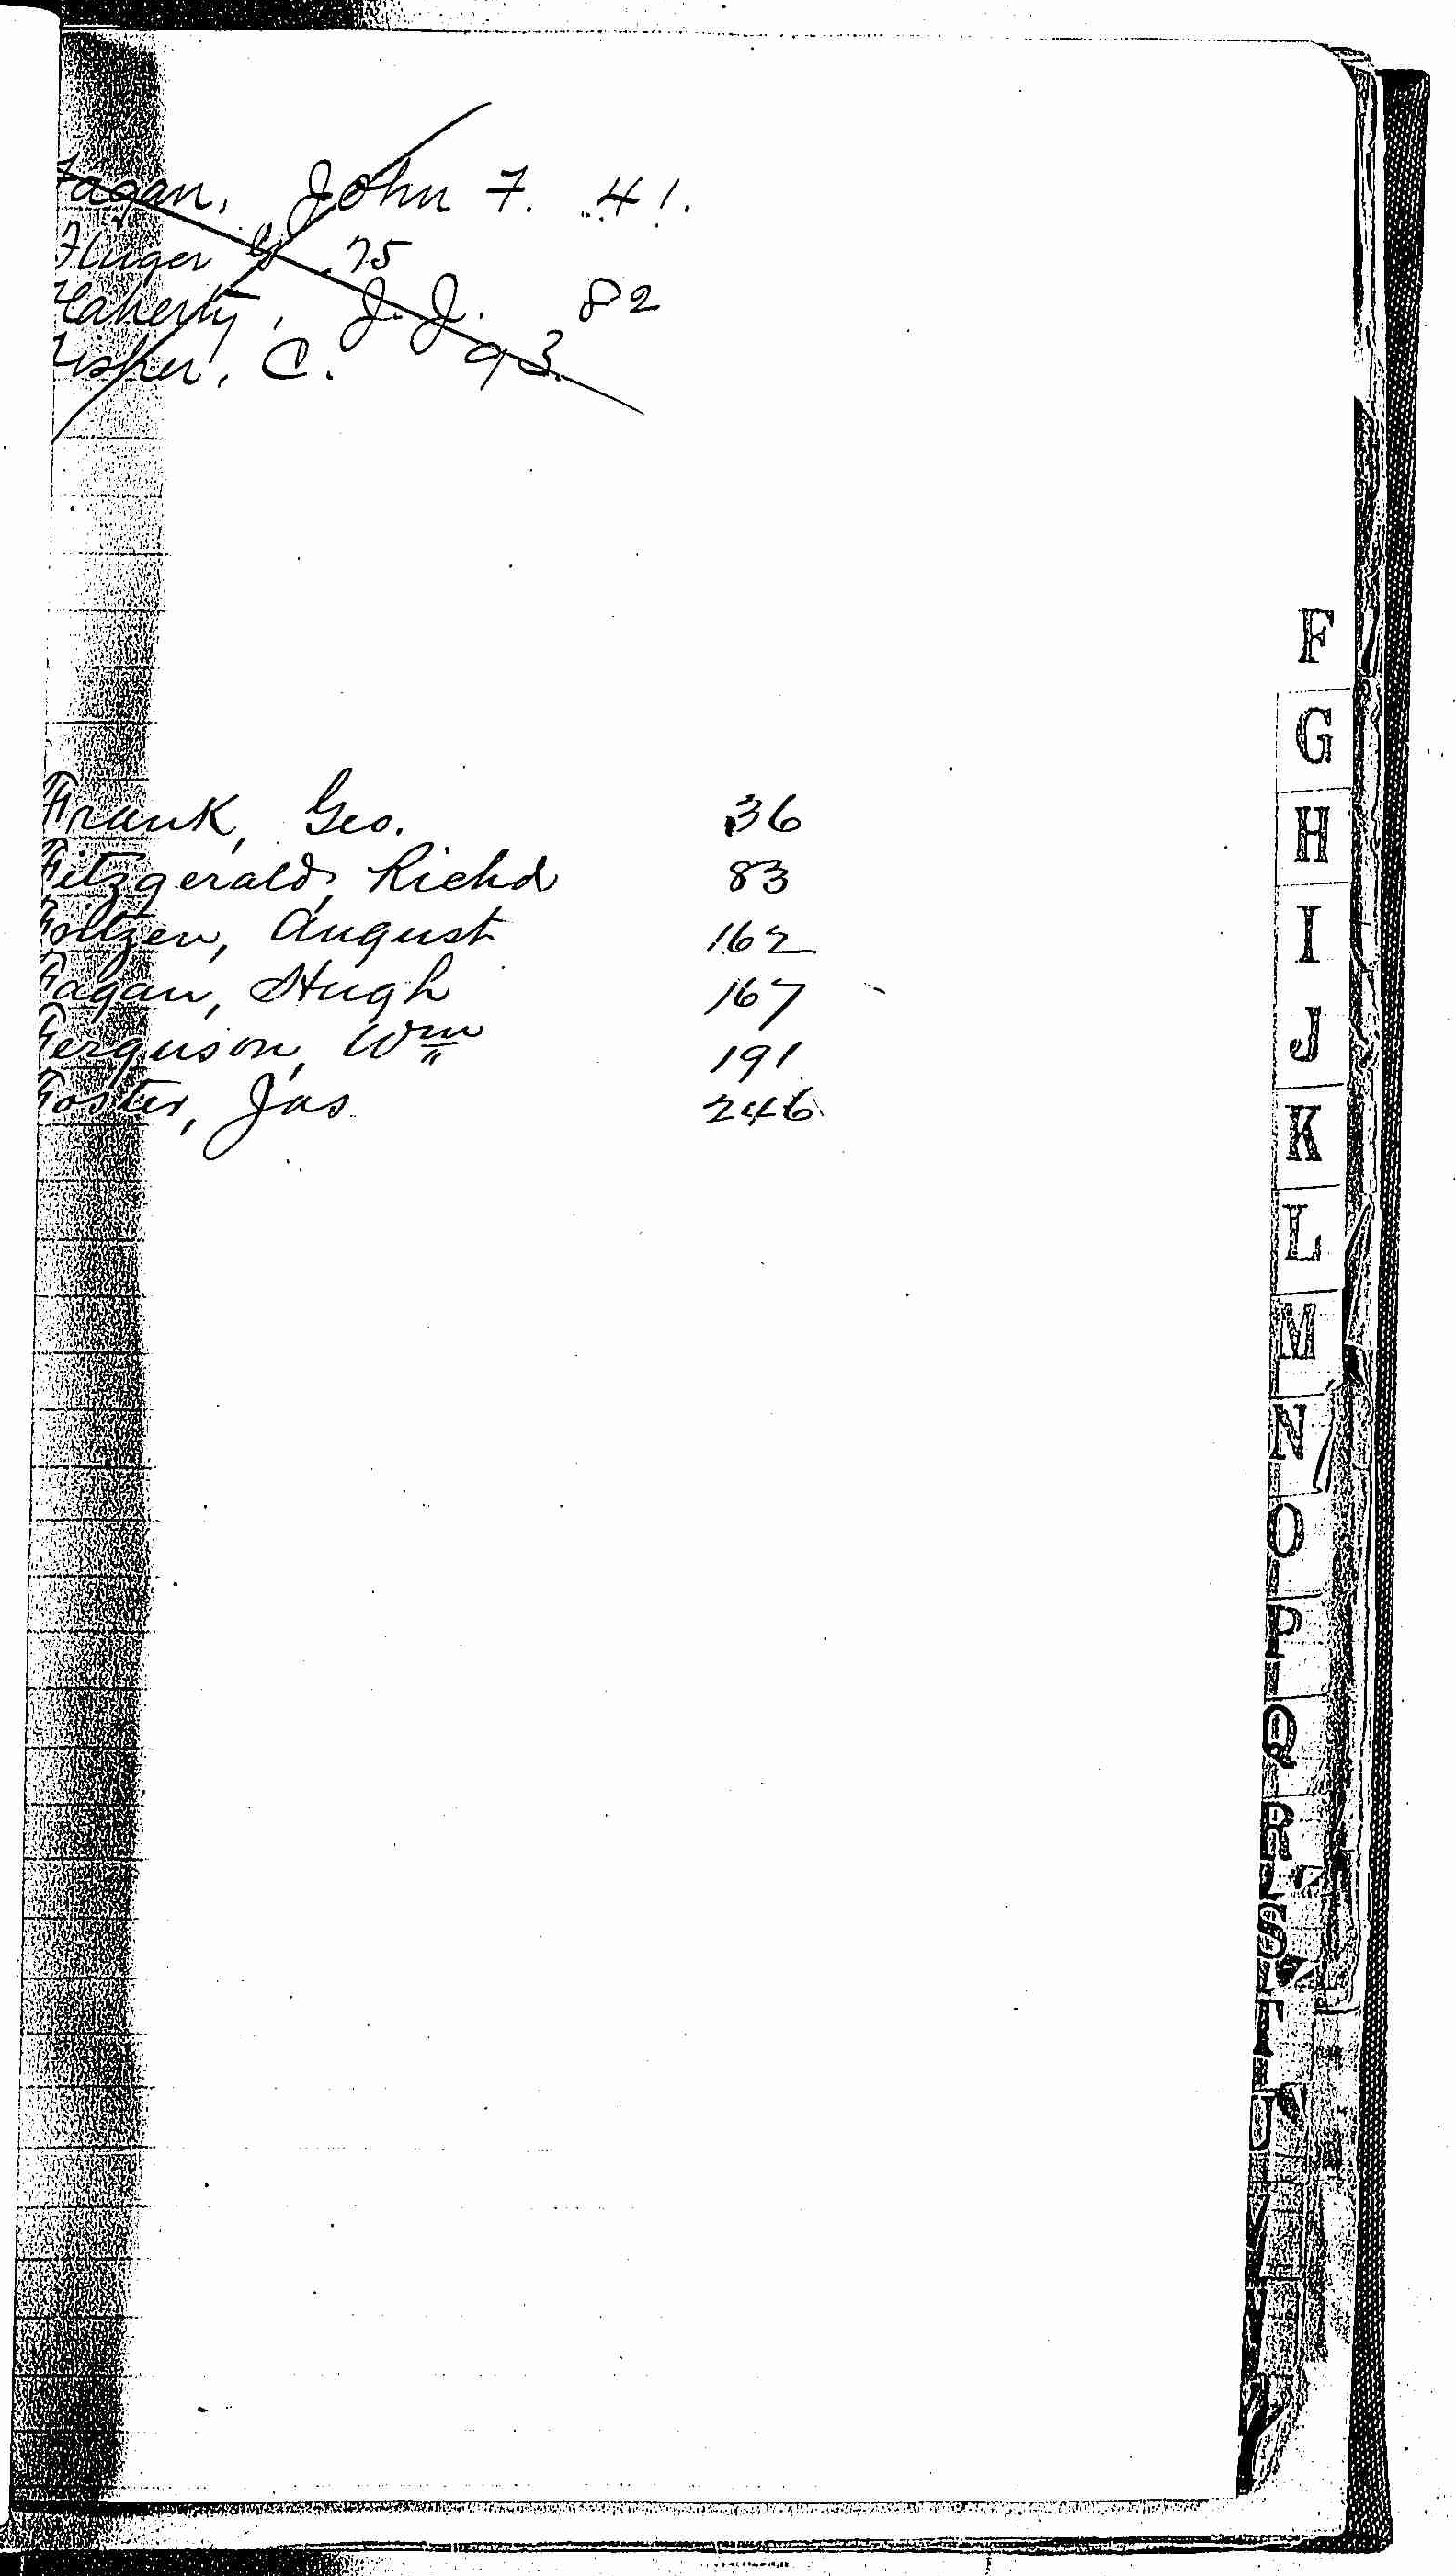 Fagan, John F. 41.
Fluger G 75
Flaherty, J. J. 82
Fisher, C. 93.
Frank, Geo. 36
Fitzgerald, Richd 83
Foltzen, August 162
Fagan, Hugh 167
Ferguson, Wm 191
Foster, Jas 246
F
G
H
I
J
K
L
M
N
O
P
Q
R
S
T
U
V